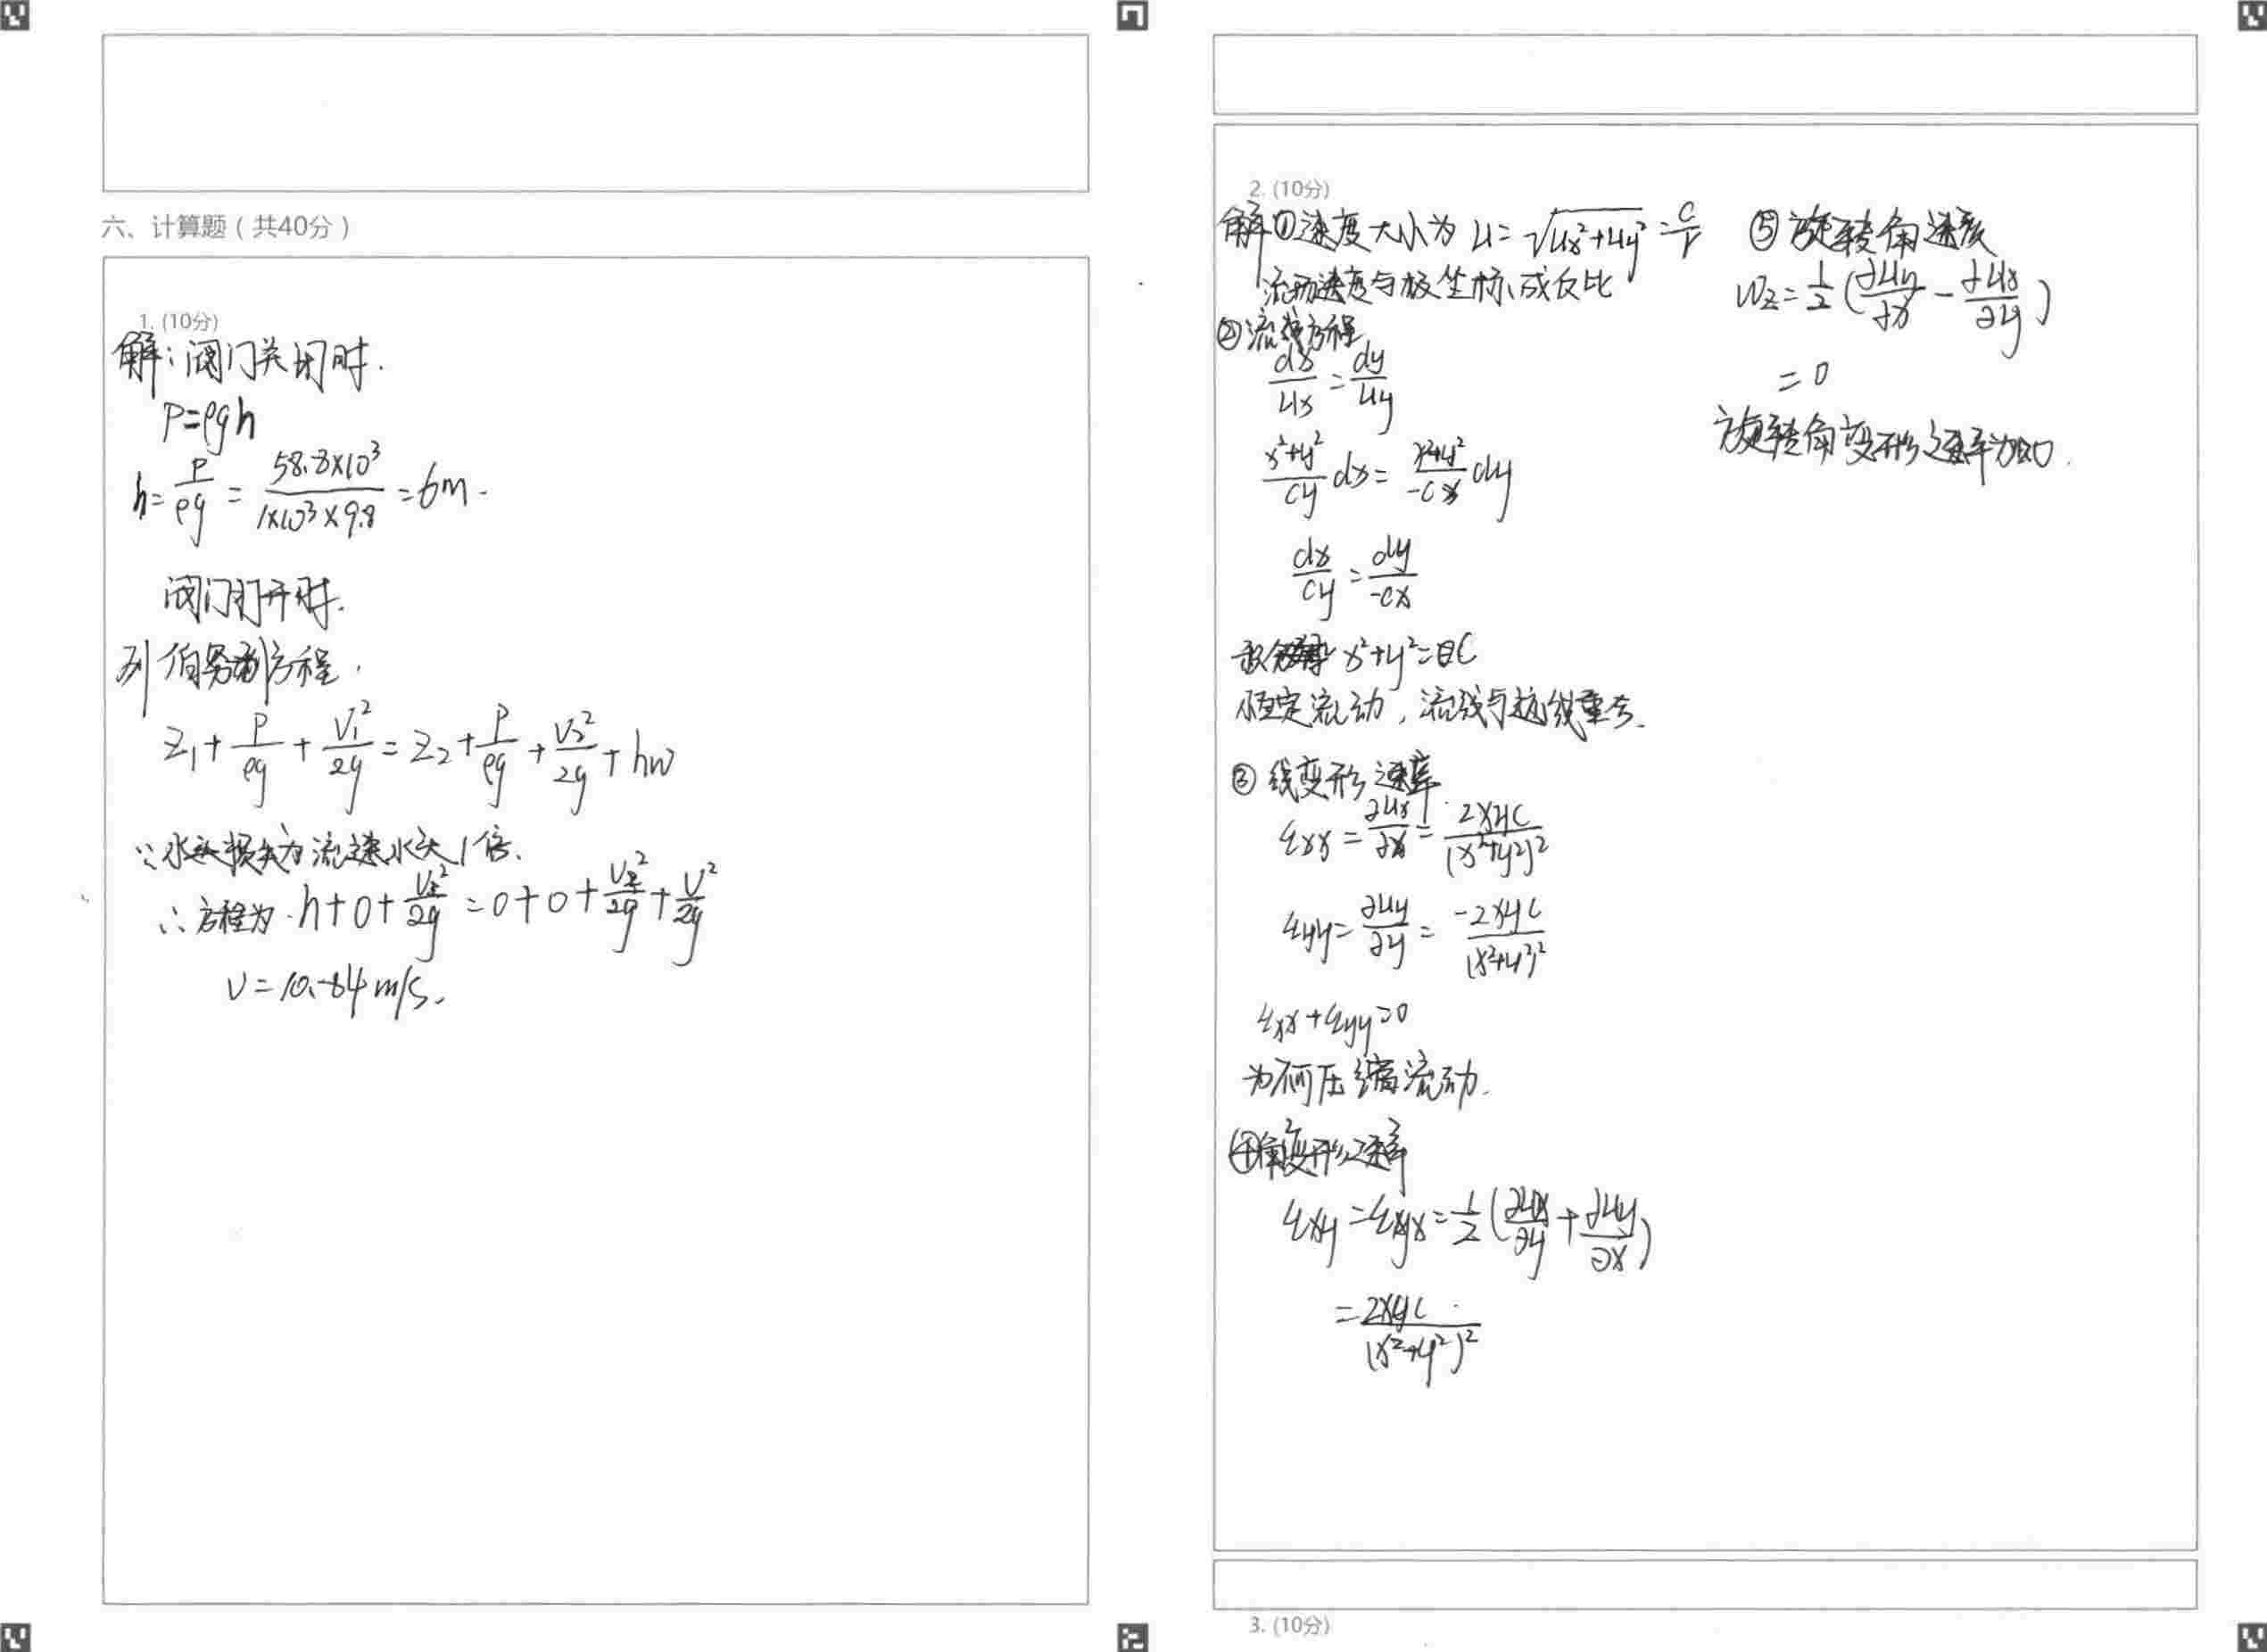 六、计算题（共40分）
1. (10分)
解：阀门关闭时.
P=ρgh
h=P/ρg = 58.8×10³/1×10³×9.8 =6m.
阀门打开时.
列伯努利方程.
Z₁+P/ρg+V₁²/2g=Z₂+P/ρg+V₂²/2g+hw
∵水头损失为流速水头1倍.
∴方程为 h+0+V²/2g=0+0+V²/2g+V²/2g
V=10.84m/s.
2. (10分)
解①速度大小为 u=√(ux²+uy²)=c/r
流动速度与极坐标成反比
②流线方程
dx/ux=dy/uy
x²+y²/cy dx= x²+y²/-cx dy
dx/cy=dy/-cx
x²+y²=C
恒定流动，流线与迹线重合.
③ 线变形速率
εxx=∂ux/∂x=2xyc/(x²+y²)²
εyy=∂uy/∂y=-2xyc/(x²+y²)²
εxx+εyy=0
为不可压缩流动.
④角变形速率
εxy=εyx=1/2(∂ux/∂y+∂uy/∂x)
=2xyc/(x²+y²)²
⑤旋转角速度
ωz=1/2(∂uy/∂x-∂ux/∂y)
=0
旋转角变形速率为0.
3. (10分)